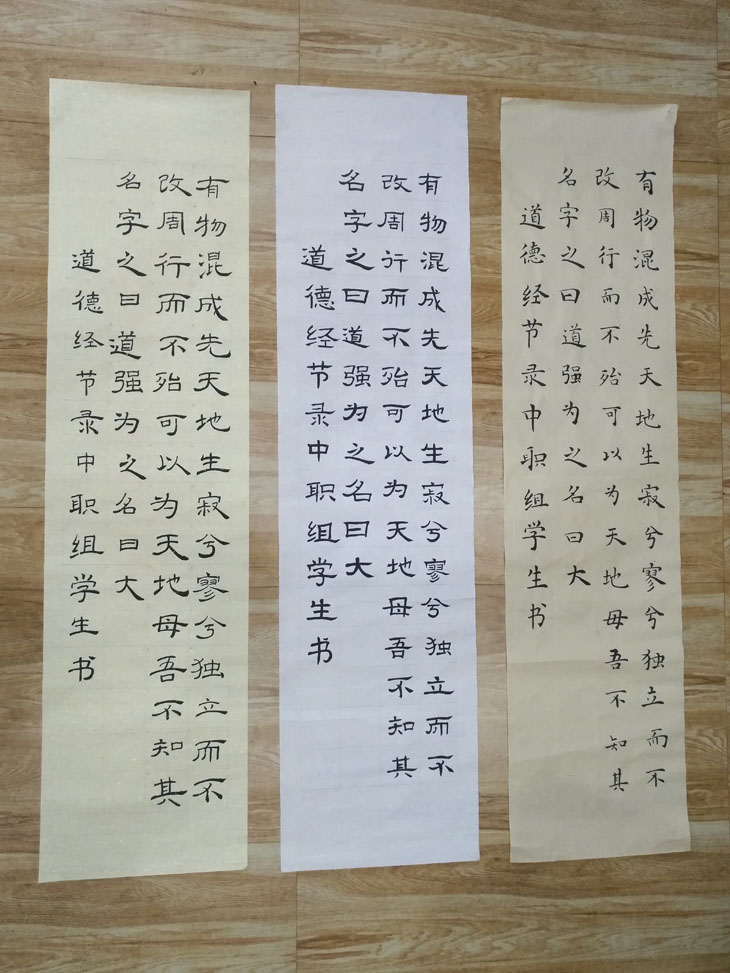 有物混成先天地生寂兮寥兮独立而不
改周行而不殆可以为天地母吾不知其
名字之曰道强为之名曰大
道德经节录中职组学生书
有物混成先天地生寂兮寥兮独立而不
改周行而不殆可以为天地母吾不知其
名字之曰道强为之名曰大
道德经节录中职组学生书
有物混成先天地生寂兮寥兮独立而不
改周行而不殆可以为天地母吾不知其
名字之曰道强为之名曰大
道德经节录中职组学生书